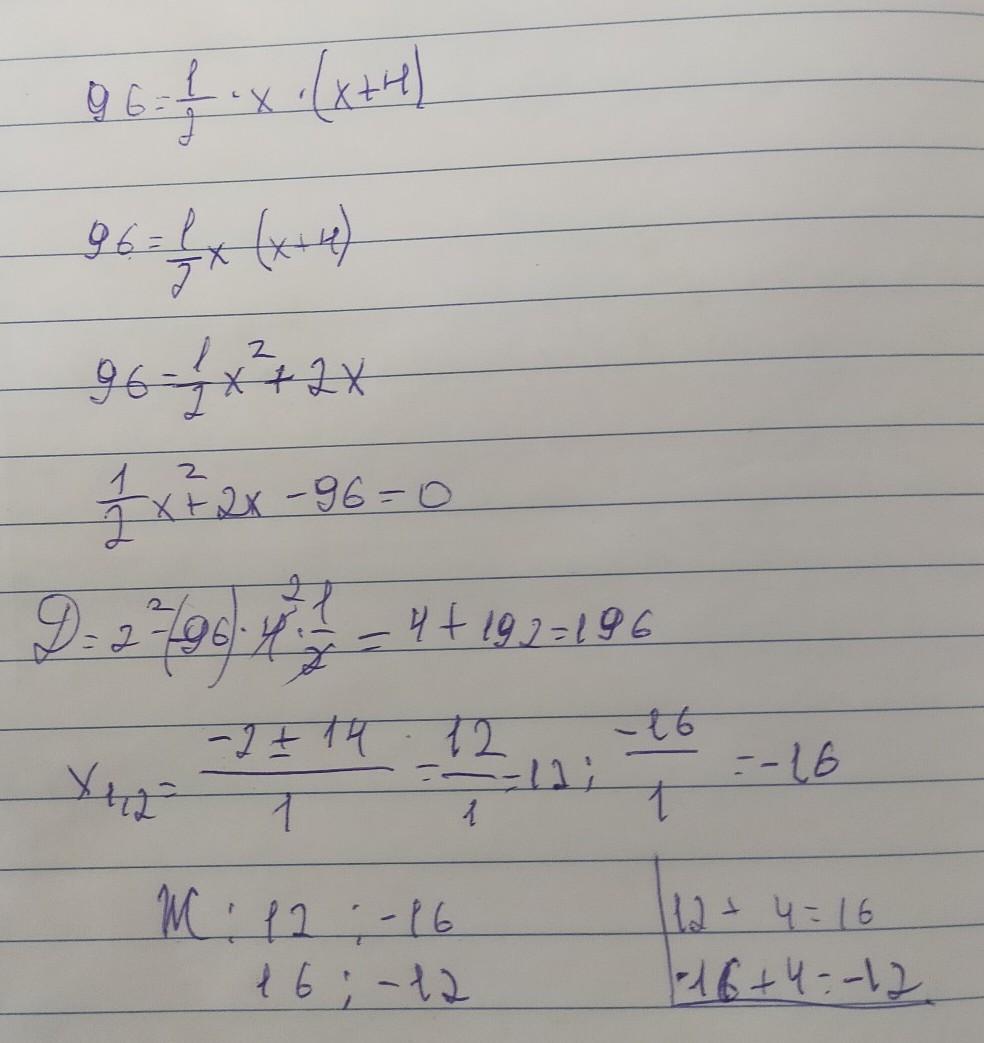 96 = 1/2 · x · (x+4)
96 = 1/2 x (x+4)
96 = 1/2 x² + 2x
1/2 x² + 2x - 96 = 0
D = 2² - (-96) · 4² · 1/2 = 4 + 192 = 196
x₁,₂ = (-2 ± 14)/1 = 12/1 = 12 ; -16/1 = -16
M : 12 ; -16
16 ; -12
12 + 4 = 16
-16 + 4 = -12